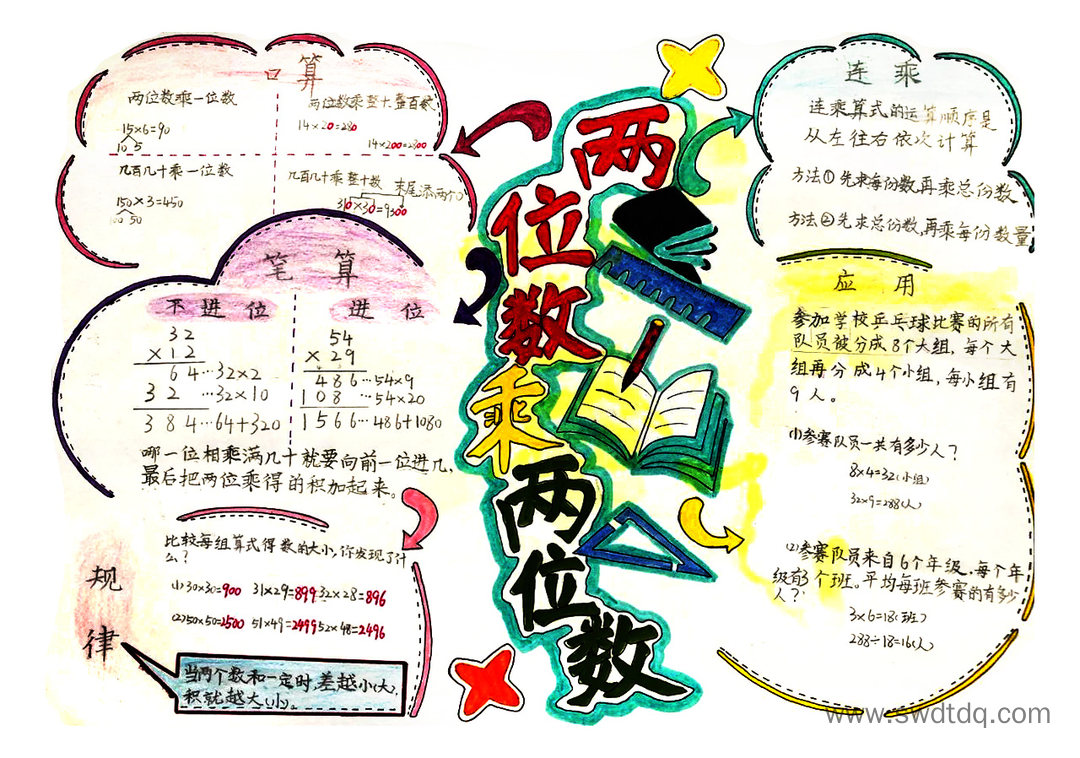 两位数乘两位数
口算
两位数乘一位数
15×6=90
10 5
两位数乘整十整百数
14×20=280
14×200=2800
几百几十乘一位数
150×3=450
50
几百几十乘整十数
末尾添两个0
310×30=9300
笔算
不进位
32
×12
64…32×2
32 …32×10
384…64+320
进位
54
×29
486…54×9
108 …54×20
1566…486+1080
哪一位相乘满几十就要向前一位进几,
最后把两位乘得的积加起来。
规律
比较每组算式得数的大小,你发现了什
么?
(1)30×30=900 31×29=899 32×28=896
(2)50×50=2500 51×49=2499 52×48=2496
当两个数和一定时,差越小(大),
积就越大(小)。
连乘
连乘算式的运算顺序是
从左往右依次计算
方法①先求每份数,再乘总份数
方法②先求总份数,再乘每份数量
应用
参加学校乒乓球比赛的所有
队员被分成8个大组,每个大
组再分成4个小组,每小组有
9人。
(1)参赛队员一共有多少人?
8×4=32(小组)
32×9=288(人)
(2)参赛队员来自6个年级。每个年
级有3个班。平均每班参赛的有多少
人?
3×6=18(班)
288÷18=16(人)
www.swdtdq.com